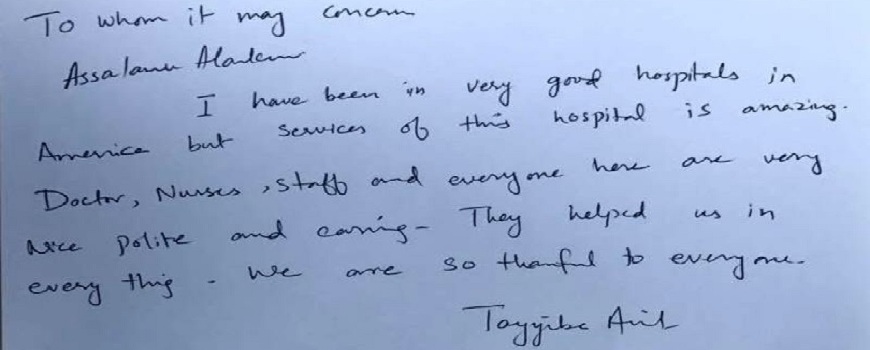 To whom it may concern
Assalamu Alaikum
I have been in very good hospitals in
America but services of this hospital is amazing.
Doctor, Nurses, staff and everyone here are very
nice polite and caring - They helped us in
every thing - We are so thanful to everyone.
Tayyiba